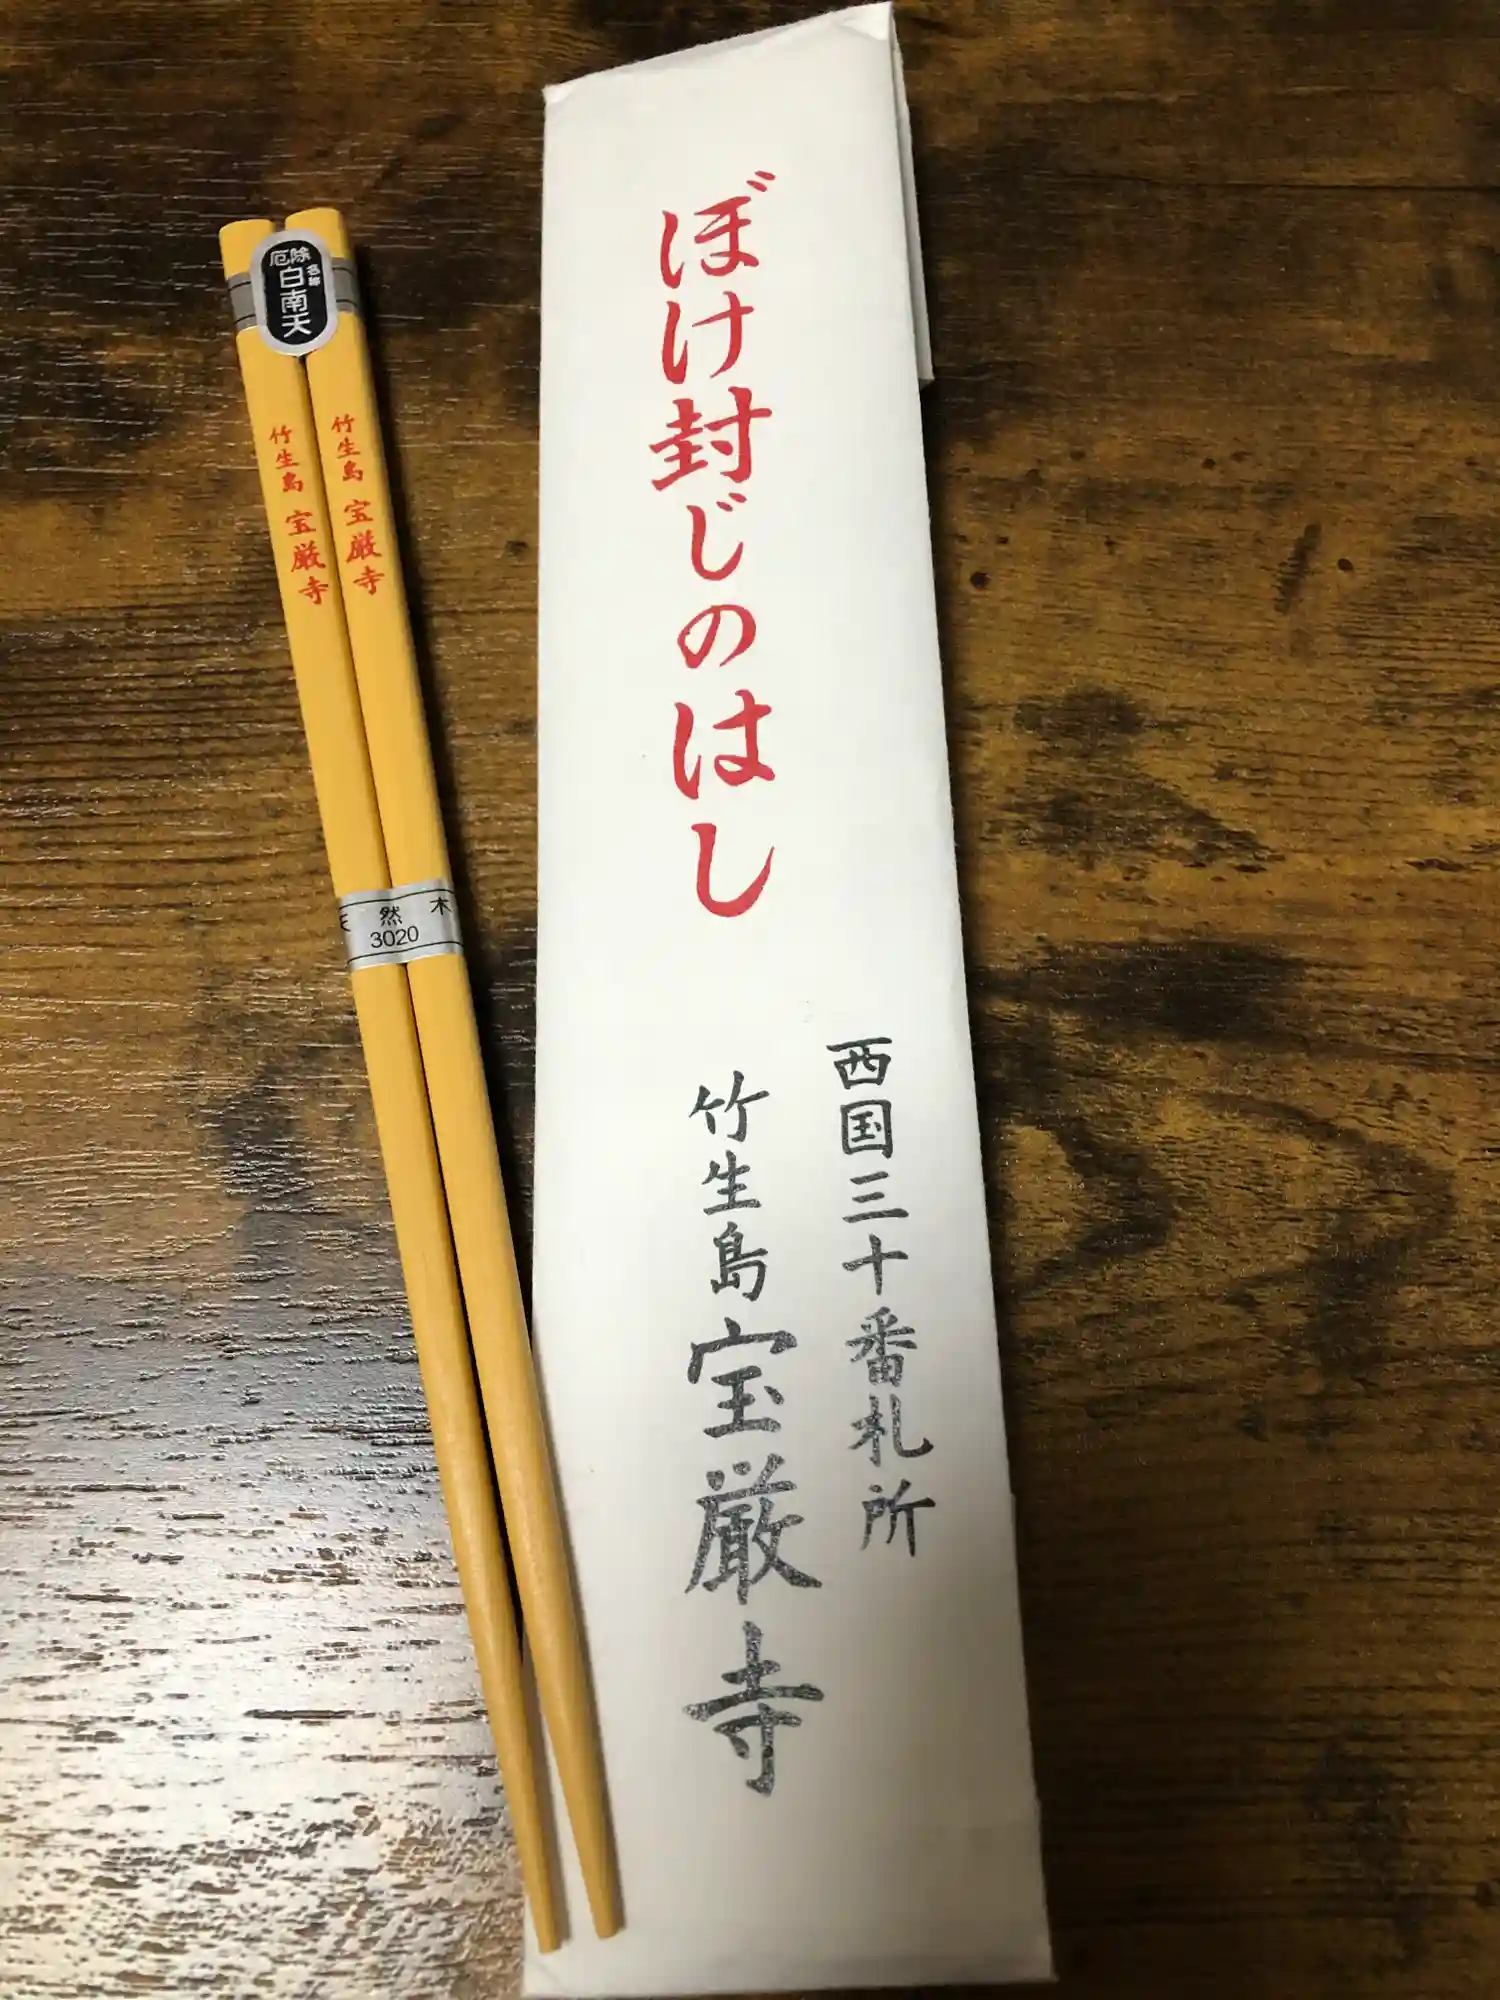 ぼけ封じのはし
西国三十番札所
竹生島 宝厳寺
厄除
名称
白南天
竹生島 宝厳寺
竹生島 宝厳寺
天然木
3020